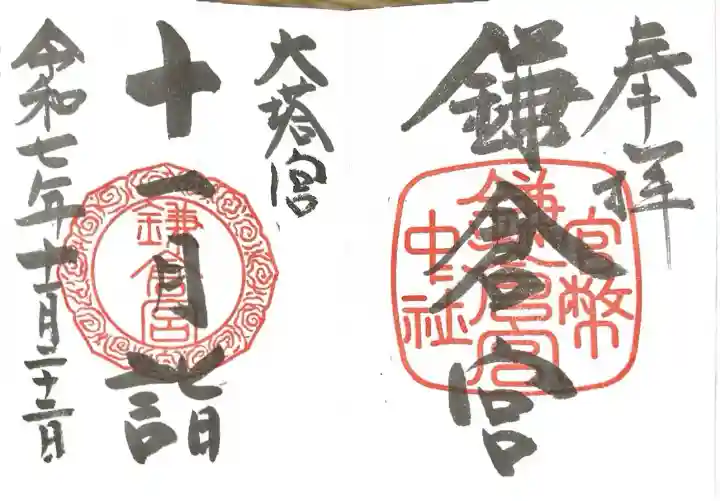 奉拝
鎌倉宮
官幣
鎌倉宮
中社
大塔宮
十一月詣
鎌倉宮
令和七年十一月二十二日